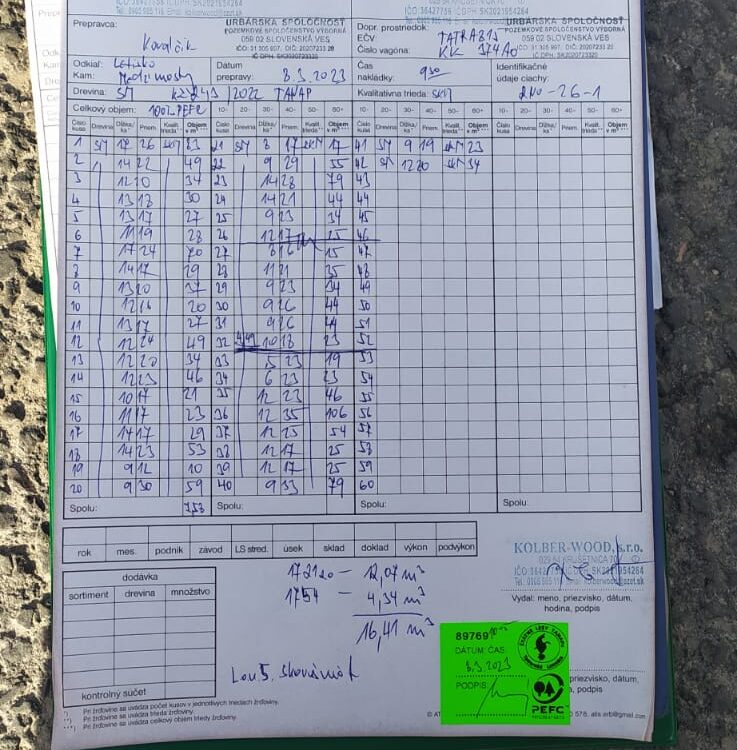 IČO:36427756 IČ DPH: SK2021954264
Prepravca:
URBÁRSKA SPOLOČNOSŤ
POZEMKOVÉ SPOLOČENSTVO VÝBORNÁ
059 02 SLOVENSKÁ VES
Kovalčík
Dopr. prostriedok:
EČV: TATRA 815
Číslo vagóna: KK 374AO
URBÁRSKA SPOLOČNOSŤ
POZEMKOVÉ SPOLOČENSTVO VÝBORNÁ
059 02 SLOVENSKÁ VES
Odkiaľ: Letisko
Kam:
Dátum
prepravy: 8.3.2023
Čas
nakládky: 930
Identifikačné
údaje ciachy:
2NO-26-1
Drevina: SM /2022 TANAP
Kvalitatívna trieda:
Celkový objem: 100% PEFC 10- 20- 30- 40- 50- 60+ 10- 20- 30- 40- 50- 60+ 10- 20- 30- 40- 50- 60+
Číslo kusa Drevina Dĺžka/ks Priem. Kvalit. trieda Objem v m³
1 SM 12 26 83 21 SM 8 17 17 41 SM 9 19 23
2 14 22 49 22 9 29 55 42 SM 12 20 34
3 12 20 34 23 14 28 79 43
4 13 18 30 24 14 21 44 44
5 13 17 27 25 9 23 34 45
6 11 19 28 26 12 17 25 46
7 17 24 70 27 8 16 15 47
8 14 17 29 28 11 21 35 48
9 13 20 37 29 9 23 34 49
10 12 16 20 30 9 26 44 50
11 13 17 27 31 9 26 44 51
12 12 24 49 32 4,49 10 18 23 52
13 12 20 34 33 5 23 19 53
14 12 23 46 34 6 23 23 54
15 10 17 21 35 12 23 46 55
16 11 17 23 36 12 35 106 56
17 14 17 29 37 12 25 54 57
18 14 23 53 38 12 17 25 58
19 9 12 10 39 12 17 25 59
20 9 30 59 40 9 33 79 60
Spolu: 7,58 Spolu: Spolu: Spolu:
rok mes. podnik závod LS stred. úsek sklad doklad výkon podvýkon
dodávka
sortiment drevina množstvo
kontrolný súčet
172120 — 12,07 m³
1754 — 4,34 m³
16,41 m³
KOLBER-WOOD, s.r.o.
029 54 KRUŠETNICA 70
Vydal: meno, priezvisko, dátum,
hodina, podpis
89769
DÁTUM ČAS:
8.3.2023
PODPIS:
PEFC
priezvisko, dátum,
podpis
*) Pri žrďovine sa uvádza počet kusov v jednotlivých triedach žrďoviny.
**) Pri žrďovine sa uvádza trieda žrďoviny.
***) Pri žrďovine sa uvádza celkový objem triedy žrďoviny.